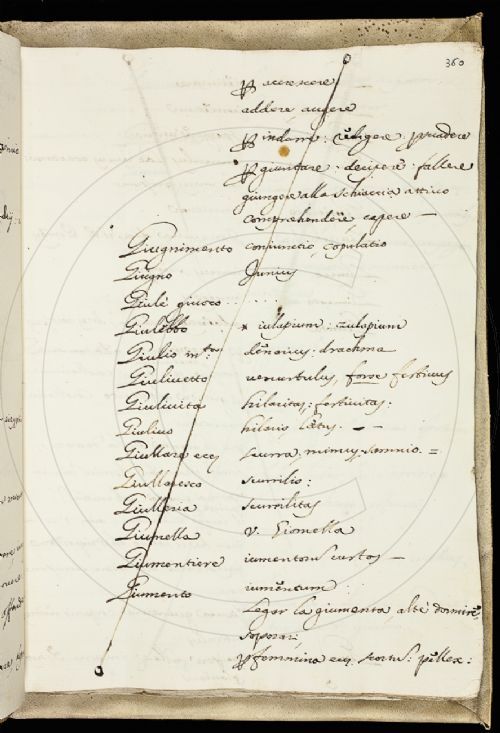 360
p accrescere
addere augere
p indurre: redigere, suadere
p giuntare. decipere. fallere
giungere alla schiaccia attivo
comprehendere, capere —
Giugnimento conjunctio, copulatio
Giugno Junius
Giulé giuoco . . . . .
Giulebbo × iulapium: zulapium
Giulio m.to denarius. drachma
Giulivetto venustulus, forse festivus
Giulività hilaritas: festivitas:
Giulivo hilaris laetus. — —
Giullare ecc scurra, mimus, sannio. =
Giullaresco scurrilis:
Giulleria scurrilitas
Giumella v. Giomella
Giumentiere iumentorum custos —
Giumento iumentum:
Legar la giumenta alte dormire
soporari
p femmina ecc. scortum: pellex: